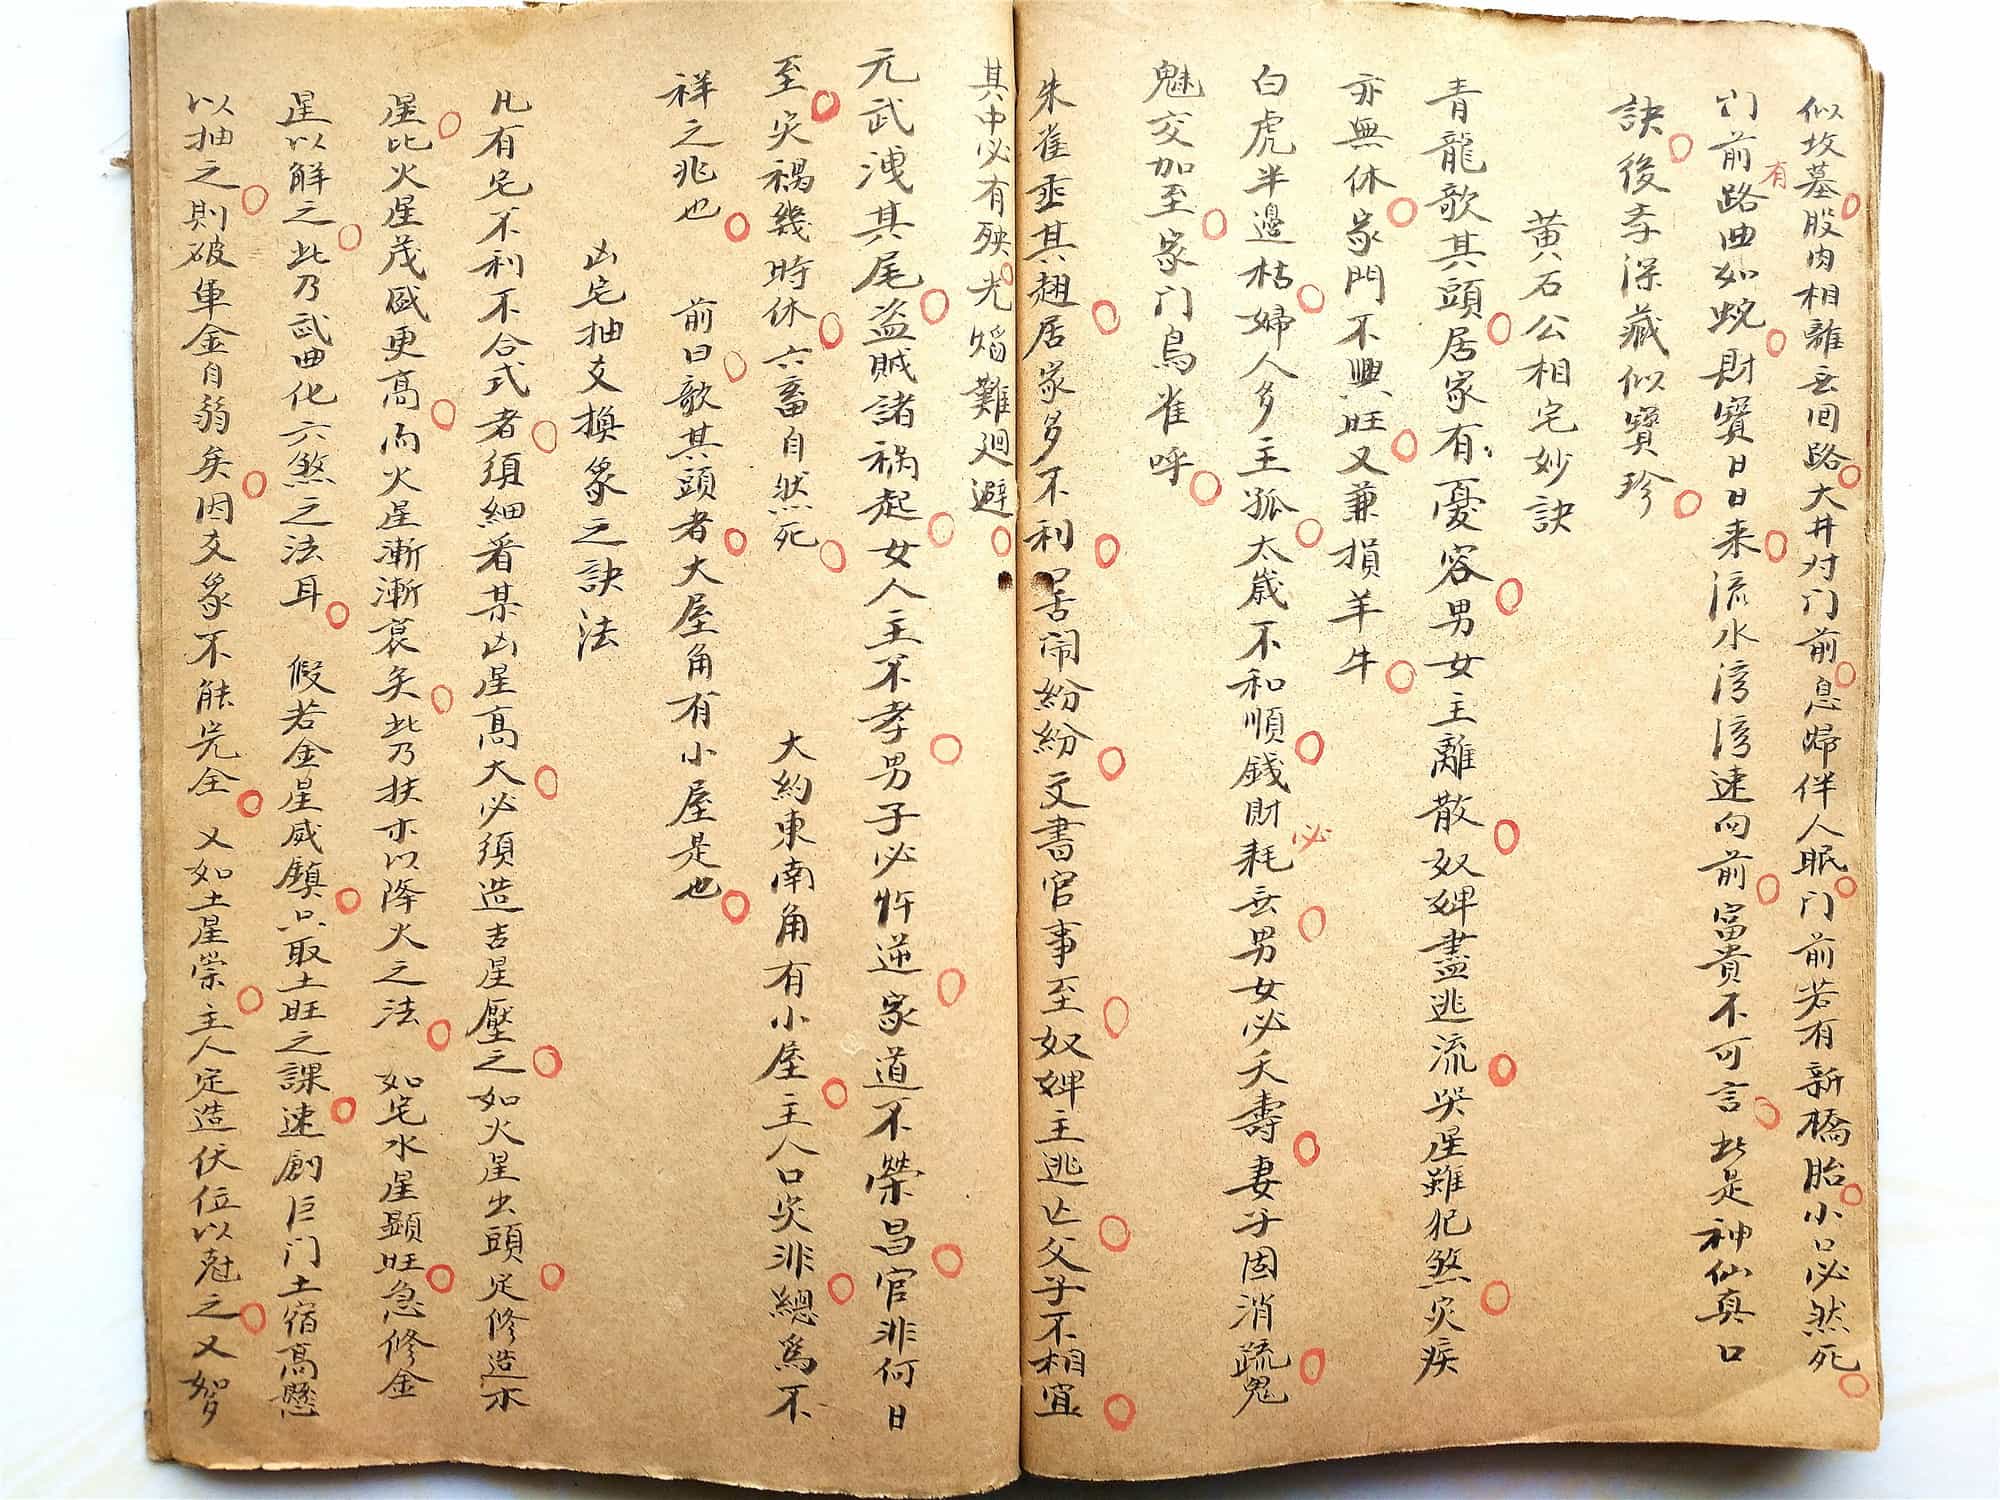 似坟墓股肉相離無回路大井对门前息婦伴人眠门前若有新橋胎小口必然死
门前路曲如蜿財寶日日来流水湾湾速向前富貴不可言此是神仙真口
有
訣後李深藏似寶珍
黄石公相宅妙訣
青龍歌其頭居家有憂容男女主離散奴婢盡逃流哭星雖犯煞灾疾
亦無休家門不興旺又兼損羊牛
白虎半邊枯婦人多主孤太歲不和順錢財耗无男女必夭壽妻子因消疏鬼
必
魅交加至家门鳥雀呼
朱雀垂其翅居家多不利口舌闹紛紛文書官事至奴婢主逃亡父子不相宜
其中必有殃光難廻避
元武洩其尾盗賊諸祸起女人主不孝男子必忤逆家道不榮昌官非何日
至灾禍幾時休六畜自然死 大約東南角有小屋主人口灾非總爲不
祥之兆也 前曰歌其頭者大屋角有小屋是也
凶宅抽爻換象之訣法
凡有宅不利不合式者須細看某凶星高大必須造吉星壓之如火星出頭定修造水
星比火星茂盛更高而火星漸漸衰矣此乃扶水以降火之法 如宅水星顯旺急修金
星以解之此乃武曲化六煞之法耳 假若金星威鎮只取土旺之課速創巨门土宿高懸
以抽之則破軍金自弱矣因爻象不能完全 又如土星崇主人定造伏位以尅之又如